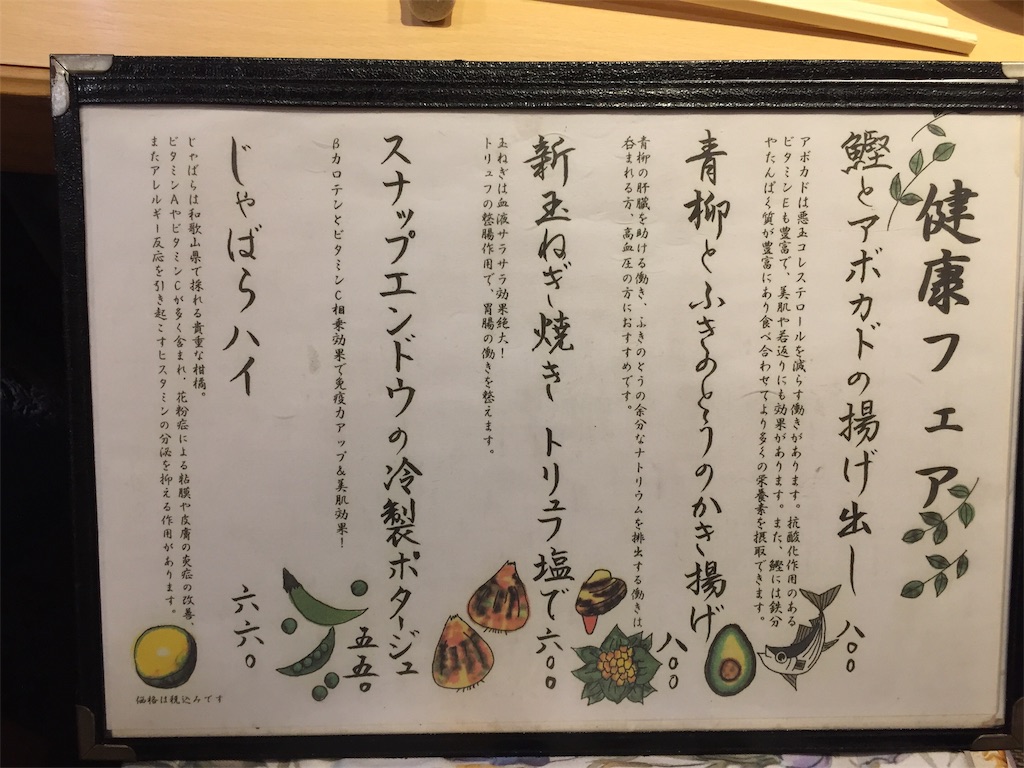 健康フェア
鰹とアボカドの揚げ出し 八〇〇
アボカドは悪玉コレステロールを減らす働きがあります。抗酸化作用のある
ビタミンEも豊富で、美肌や若返りにも効果があります。また、鰹には鉄分
やたんぱく質が豊富にあり食べ合わせてより多くの栄養素を摂取できます。
青柳とふきのとうのかき揚げ 八〇〇
青柳の肝臓を助ける働き、ふきのとうの余分なナトリウムを排出する働きは
呑まれる方、高血圧の方におすすめです。
新玉ねぎ焼き トリュフ塩で 六〇〇
玉ねぎは血液サラサラ効果絶大!
トリュフの整腸作用で、胃腸の働きを整えます。
スナップエンドウの冷製ポタージュ 五五〇
βカロテンとビタミンC相乗効果で免疫力アップ&美肌効果!
じゃばらハイ 六六〇
じゃばらは和歌山県で採れる貴重な柑橘。
ビタミンAやビタミンCが多く含まれ、花粉症による粘膜や皮膚の炎症の改善、
またアレルギー反応を引き起こすヒスタミンの分泌を抑える作用があります。
価格は税込みです